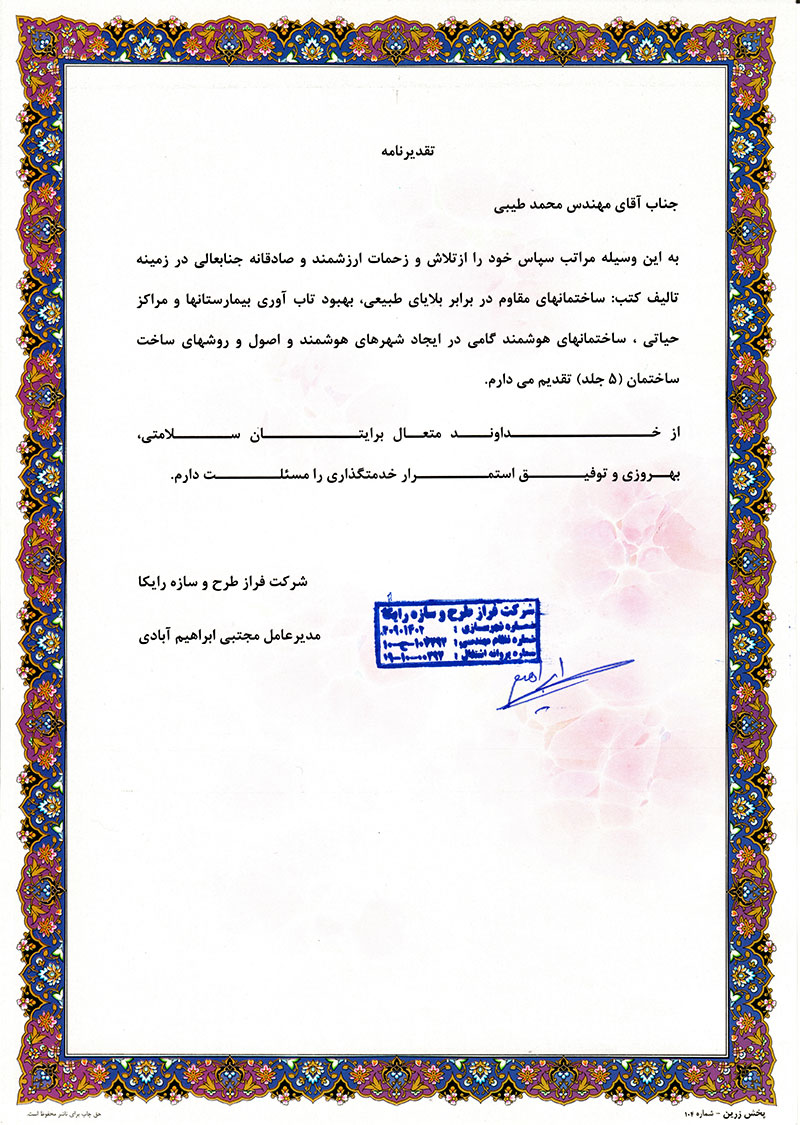 تقدیرنامه
جناب آقای مهندس محمد طیبی
به این وسیله مراتب سپاس خود را ازتلاش و زحمات ارزشمند و صادقانه جنابعالی در زمینه
تالیف کتب: ساختمانهای مقاوم در برابر بلایای طبیعی، بهبود تاب آوری بیمارستانها و مراکز
حیاتی ، ساختمانهای هوشمند گامی در ایجاد شهرهای هوشمند و اصول و روشهای ساخت
ساختمان (۵ جلد) تقدیم می دارم.
از خـــــــــداونـــد متعـــال برایتـــــــــان ســـــــلامتی،
بهـــروزی و توفیـــــــق استمـــــــرار خدمتگذاری را مسئلـــــــت دارم.
شرکت فراز طرح و سازه رایکا
مدیرعامل مجتبی ابراهیم آبادی
شرکت فراز طرح و سازه رایکا
شماره شهرسازی : ۲۰۹۰۱۴۰۲
شماره نظام مهندسی:
شماره پروانه اشتغال :
پخش زرین - شماره ۱۰۴
حق چاپ برای ناشر محفوظ است.